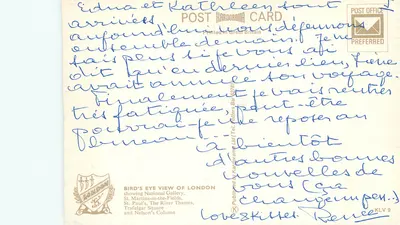 Edna et Kathleen sont
arrivées
POST CARD
POST OFFICE
PREFERRED
aujourd'hui nous déjeunons
ensemble demain. Je ne
sais plus si je vous ai
dit qu'en dernier lieu, Irène
avait annulé son voyage.
Finalement je vais rentrer
très fatiguée, peut-être
pourrai-je me reposer au
bureau.
à bientôt
d'autres bonnes
nouvelles de
vous (ça
change un peu..)
Love & kisses Renée
BIRD'S EYE VIEW OF LONDON
showing National Gallery,
St. Martin-in-the-Fields,
St. Paul's, The River Thames,
Trafalgar Square
and Nelson's Column
KLV 5